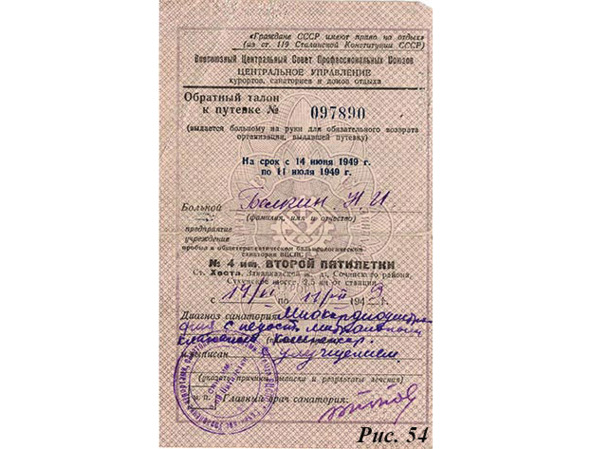 «Граждане СССР имеют право на отдых»
(из ст. 119 Сталинской Конституции СССР)
Всесоюзный Центральный Совет Профессиональных Союзов
ЦЕНТРАЛЬНОЕ УПРАВЛЕНИЕ
курортов, санаториев и домов отдыха
Обратный талон
к путевке № 097890
(выдается больному на руки для обязательного возврата
организации, выдавшей путевку)
На срок с 14 июня 1949 г.
по 11 июля 1949 г.
Больной Н. И.
(фамилия, имя и отчество)
предприятия
учреждения
пробыл в общетерапевтическом бальнеологическом
санатории ВЦСПС
№ 4 им. ВТОРОЙ ПЯТИЛЕТКИ
Ст. Хоста, Сочинского района,
шоссе, 2,5 км от станции
с 14/VI по 11/VII 1949
Диагноз санатория: Миокардиодистро-
фия с недост. митральных
клапанов компенсир.
и выписан с улучшением
(указать причины выписки и результаты лечения)
м. п. Главный врач санатория:
Рис. 54